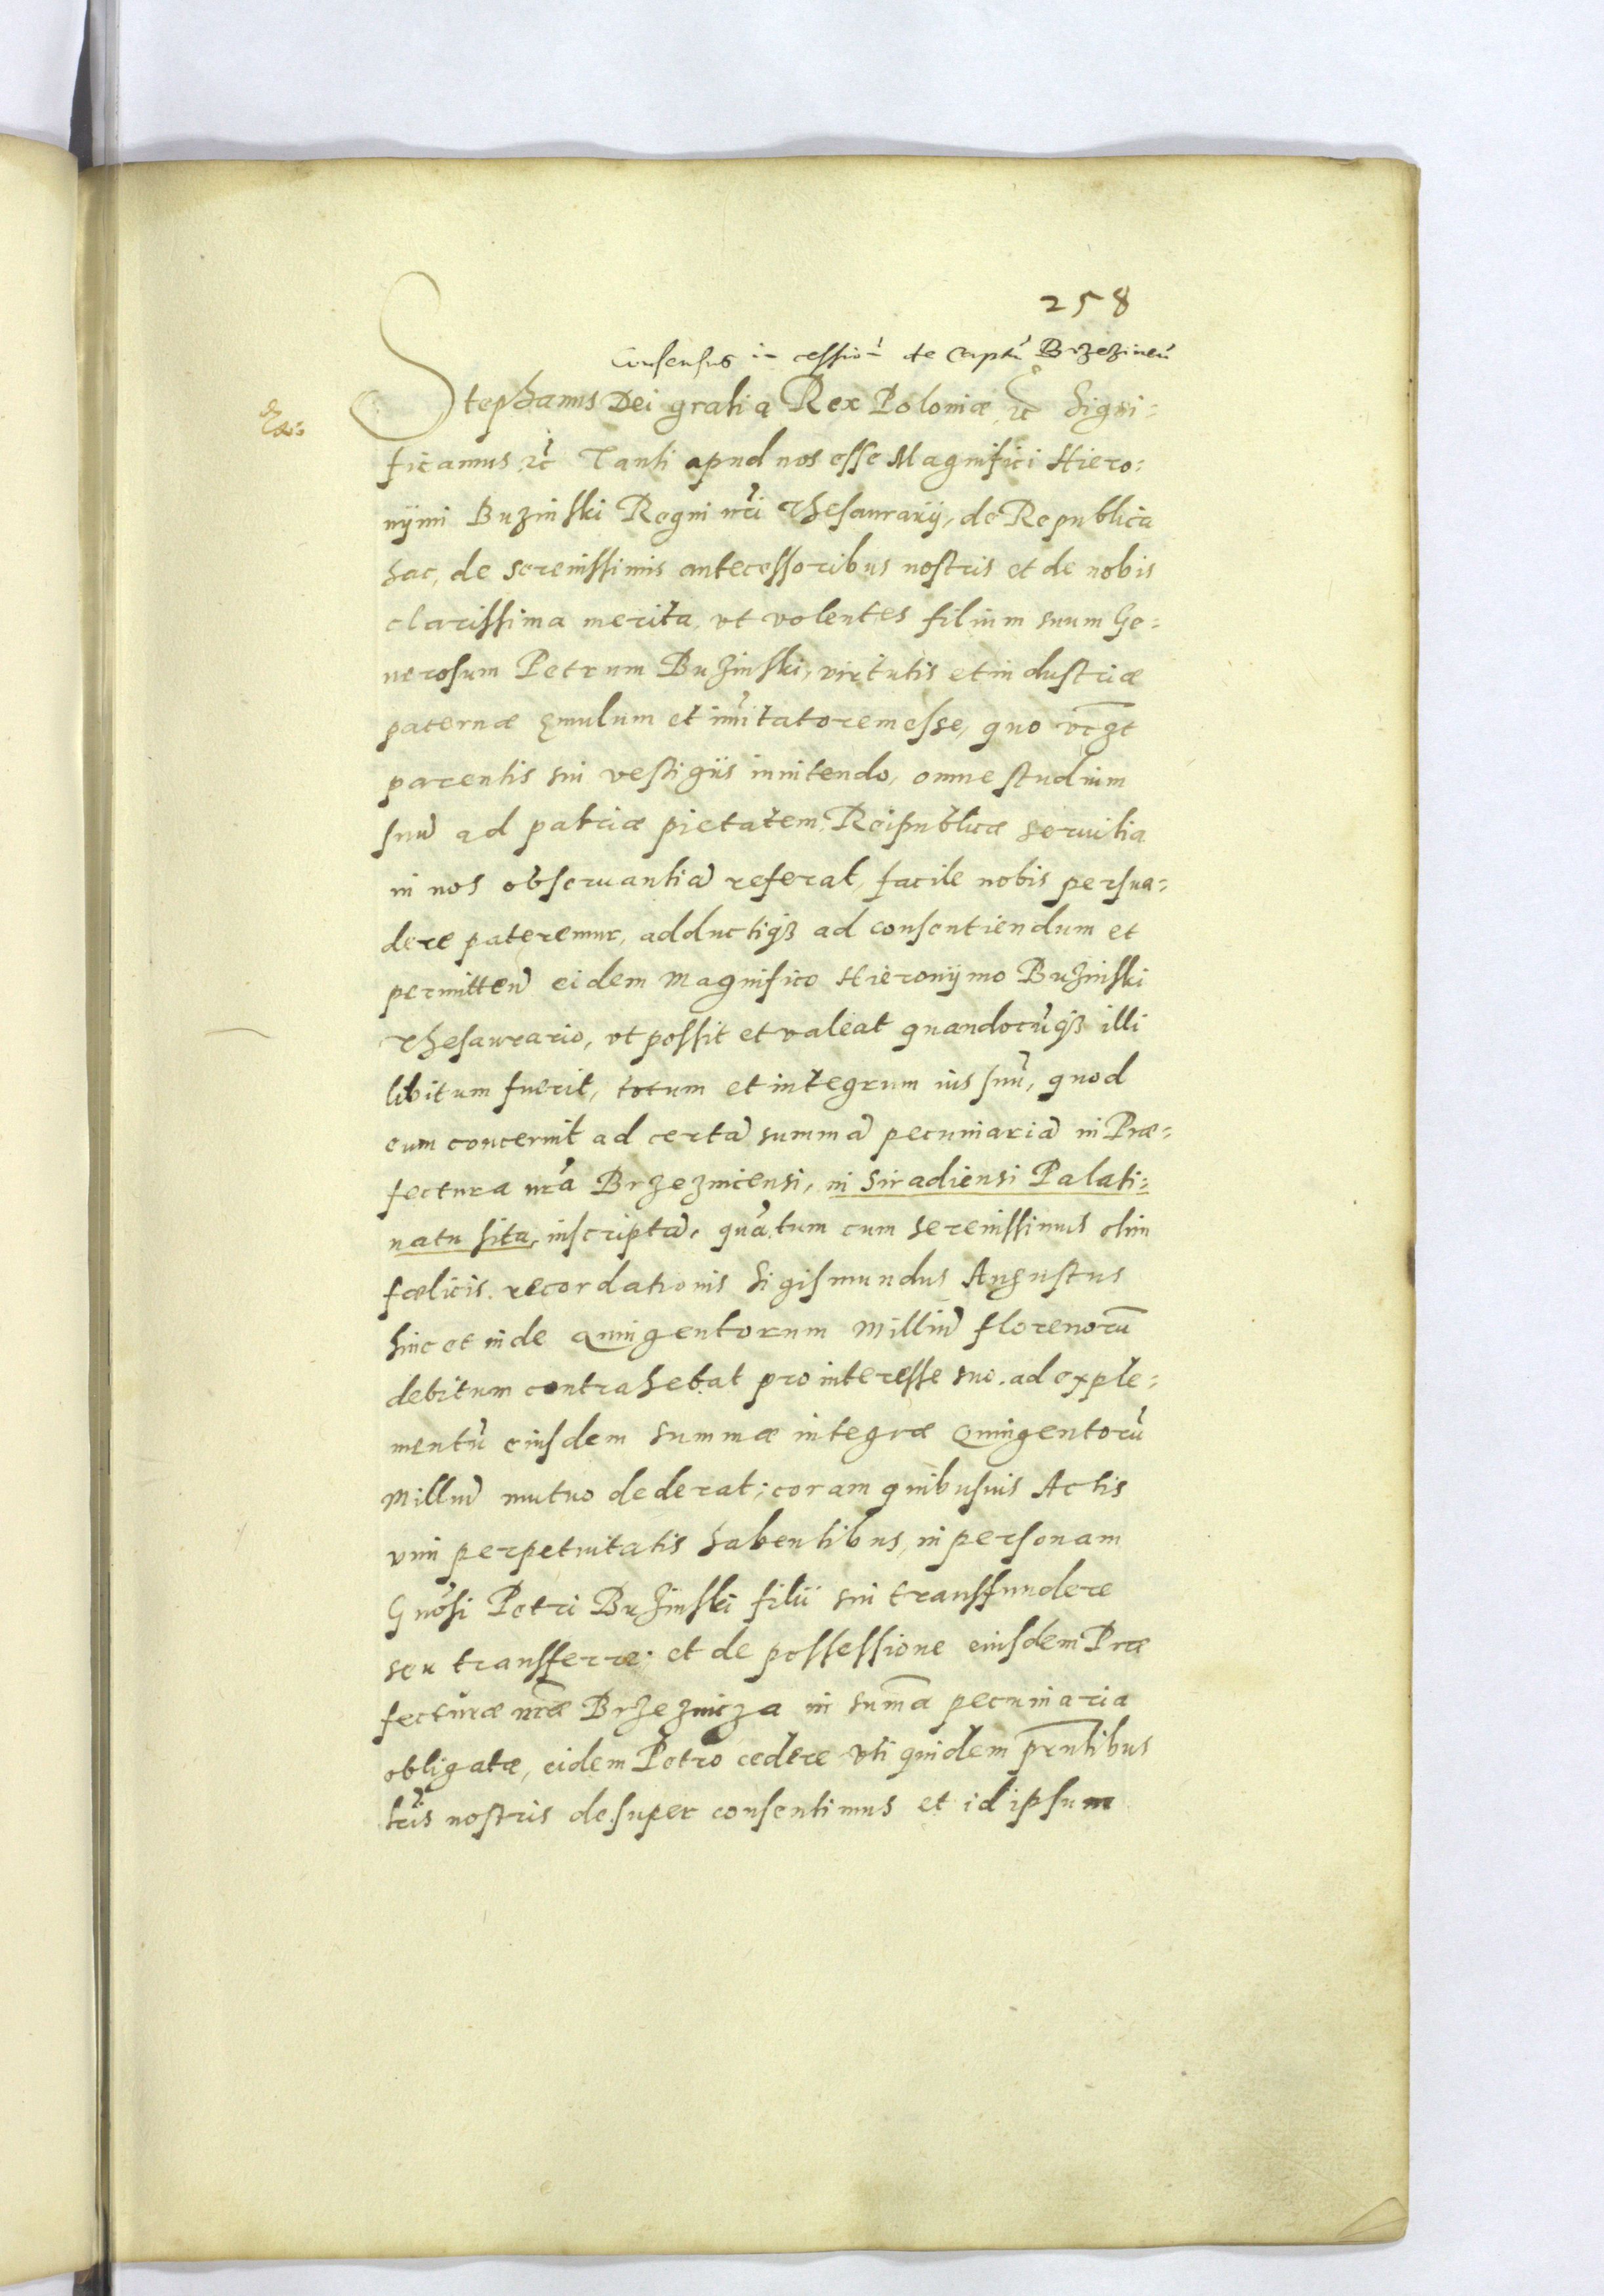 258
Consensus in cession de Captu Brzezincen
Stephanus Dei gratia Rex Poloniæ etc Signi=
ficamus etc Tanti apud nos esse Magnifici Hiero:
nÿmi Buzinski Regni nri Thesaurarÿ, de Republica
hac, de serenissimis antecessoribus nostris et de nobis
clarissima merita, vt volentes filium suum Ge=
nerosum Petrum Buzinski, virtutis et industriæ
paternæ ęmulum et imitatorem esse, quo
parentis sui vestigiis innitendo, omne studium
suũ ad patriæ pietatem, Reipublicæ seruitia
in nos obseruantiã referat, facile nobis persua=
dere pateremur, adductiq3 ad consentiendum et
permittend eidem Magnifico Hieronÿmo Buzinski
Thesaurario, vt possit et valeat quandocũq3 illi
libitum fuerit, totum et integrum ius suũ, quod
eum concernit ad certã summã pecuniariã in Præ=
fectura nra Brzeznicensi, in Siradiensi Palati=
natu sita, inscriptã, quãtum cum serenissimus olim
fœlicis recordationis Sigismundus Augustus
hinc et inde quingentorum milliũ florenorũ
debitum contrahebat pro interesse suo, ad exple=
mentũ eiusdem summæ integræ quingentorũ
Milliũ mutuo dederat; coram quibusuis Actis
vim perpetuitatis habentibus, in personam
Gnosi Petri Buzinski filii sui transfundere
seu transferre: et de possessione eiusdem Præ
fecturæ nræ Brzeznicza in suma pecuniaria
obligatæ, eidem Petro cedere vti quidem prntibus
lris nostris desuper consentimus et id ipsum